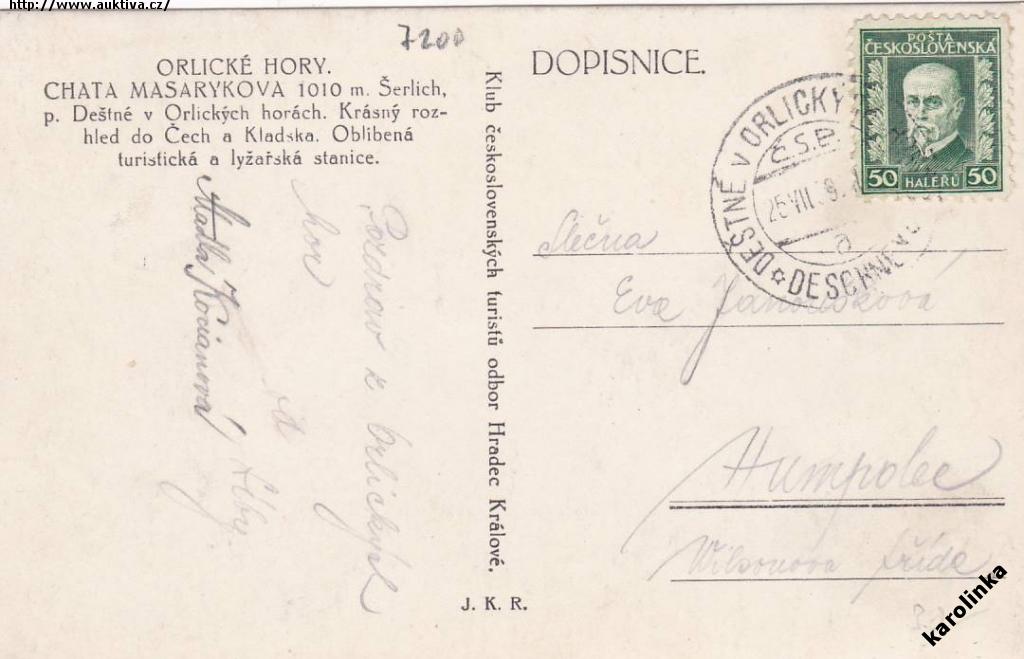 http://www.auktiva.cz/
7200
ORLICKÉ HORY.
CHATA MASARYKOVA 1010 m. Šerlich,
p. Deštné v Orlických horách. Krásný roz-
hled do Čech a Kladska. Oblíbená
turistická a lyžařská stanice.
Pozdrav z Orlických
hor
Madla Kocianová
Klub československých turistů odbor Hradec Králové.
J. K. R.
DOPISNICE.
POŠTA
ČESKOSLOVENSKÁ
50 HALÉŘŮ 50
DEŠTNÉ V ORLICKÝ
Č.S.P.
25 VII
a
DESCHNE
Slečna
Eva
Humpolec
Wilsonova třída
karolinka